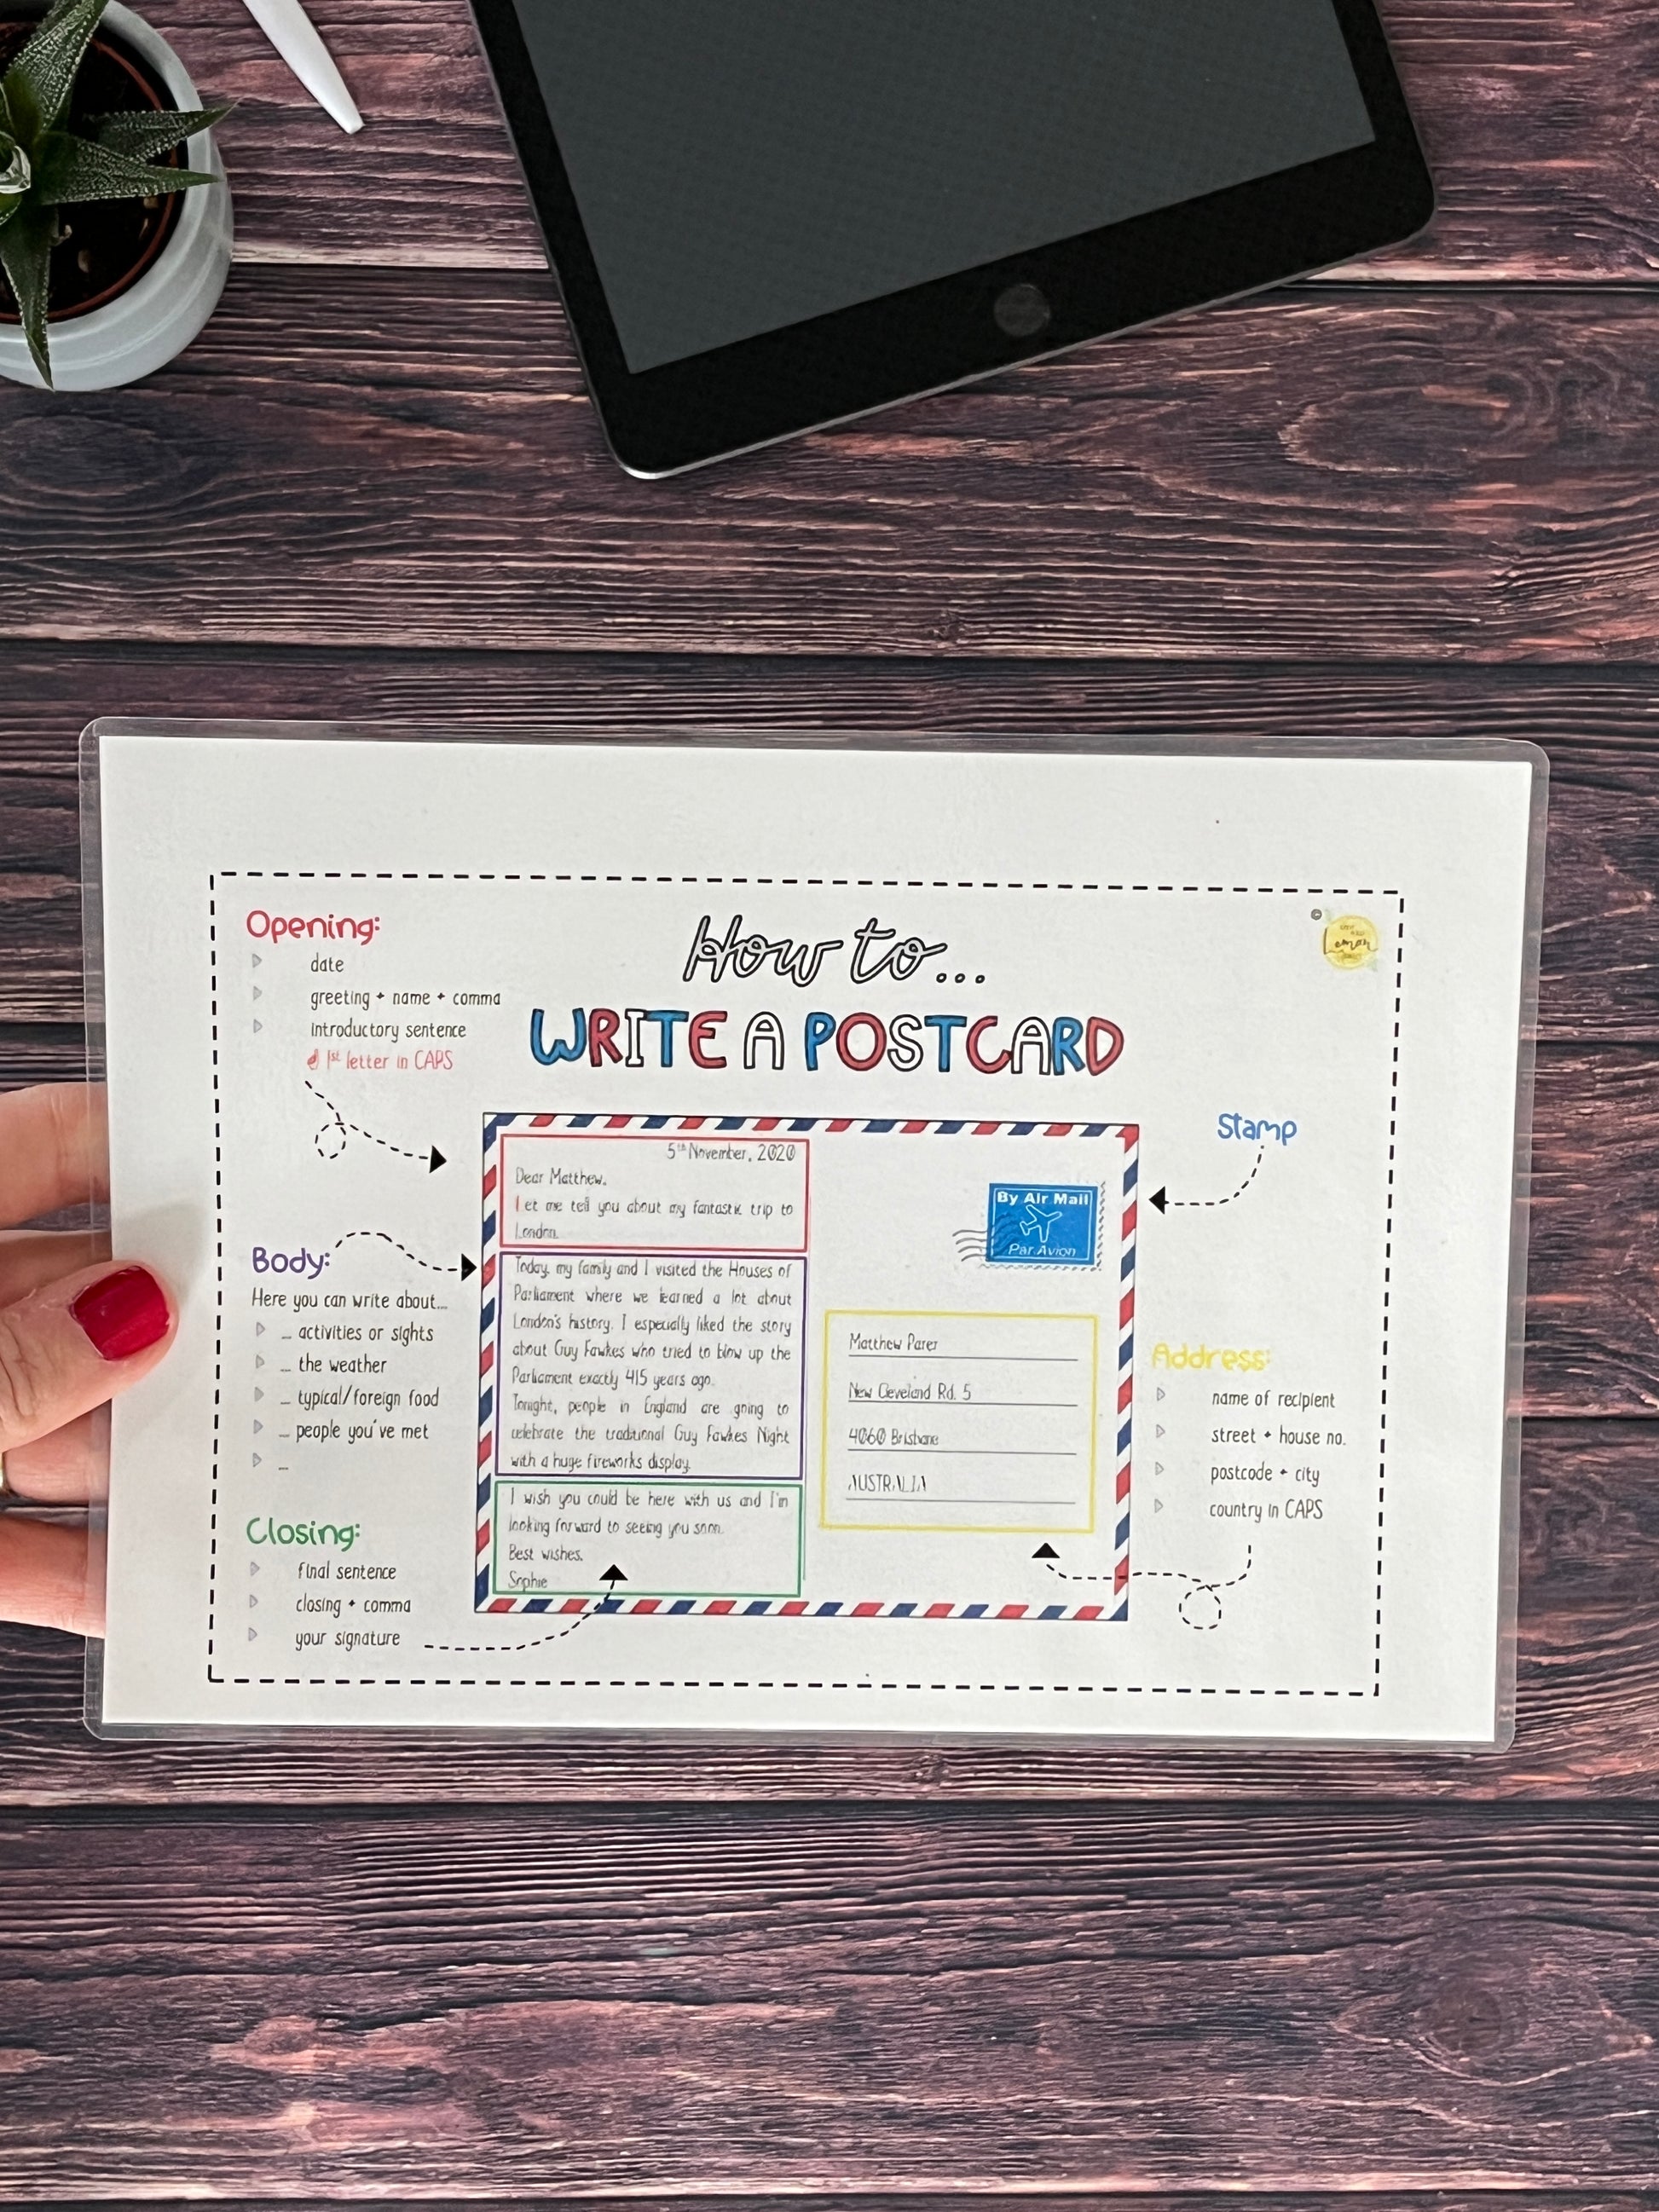 How to...
WRITE A POSTCARD
Opening:
date
greeting + name + comma
introductory sentence
1st letter in CAPS
Body:
Here you can write about...
... activities or sights
... the weather
... typical/foreign food
... people you've met
...
Closing:
final sentence
closing + comma
your signature
5th November, 2020
Dear Matthew,
Let me tell you about my fantastic trip to
London.
Today, my family and I visited the Houses of
Parliament where we learned a lot about
London's history. I especially liked the story
about Guy Fawkes who tried to blow up the
Parliament exactly 415 years ago.
Tonight, people in England are going to
celebrate the traditional Guy Fawkes Night
with a huge fireworks display.
I wish you could be here with us and I'm
looking forward to seeing you soon.
Best wishes,
Sophie
By Air Mail
Par Avion
Matthew Parer
New Cleveland Rd. 5
4060 Brisbane
AUSTRALIA
Stamp
Address:
name of recipient
street + house no.
postcode + city
country in CAPS
©
Lemon